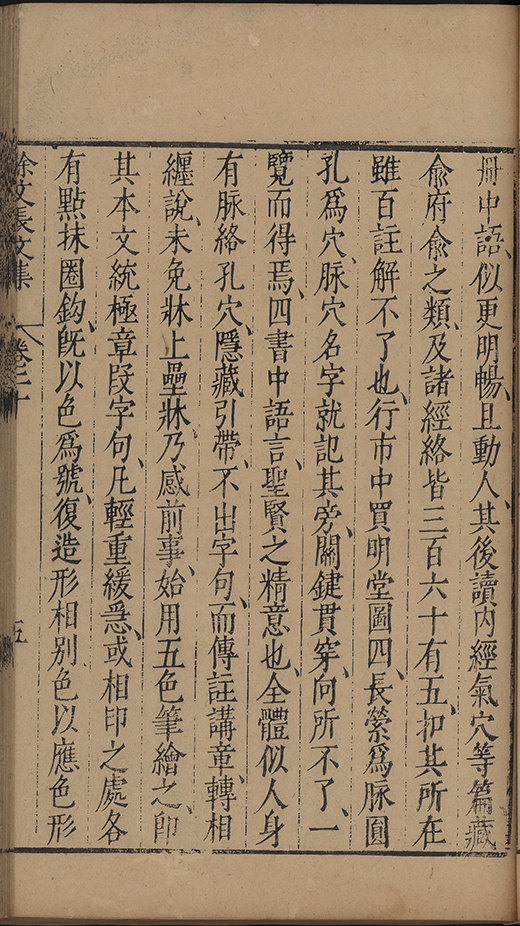 冊中語、似更明暢、且動人、其後讀内經氣穴等篇藏
俞府俞之類、及諸經絡皆三百六十有五、扣其所在
雖百註解不了也、行市中買明堂圖四、長縈爲脉圓
孔爲穴、脉穴名字就記其旁、關鍵貫穿、向所不了、一
覽而得焉、四書中語言、聖賢之精意也、全體似人身
有脉絡孔穴、隱藏引帶、不出字句、而傳註講章、轉相
纏說、未免牀上壘牀、乃感前事、始用五色筆繪之、即
其本文統極章段字句、凡輕重緩急、或相印之處各
有點抹圈鈎、旣以色爲號、復造形相别色以應色形
徐文長文集 卷二十 五